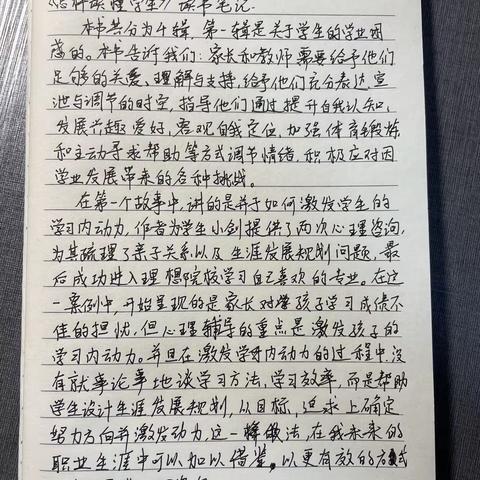 《给解读懂学生》读书笔记.
本书共分为4辑, 第一辑是关于学生的学业困
惑的。本书告诉我们：家长和教师需要给予他们
足够的关爱、理解与支持,给予他们充分表达、宣
泄与调节的时空, 指导他们通过提升自我认知、
发展兴趣爱好, 客观自我定位, 加强体育锻炼
和主动寻求帮助等方式调节情绪, 积极应对因
学业发展带来的各种挑战。
在第一个故事中, 讲的是关于如何激发学生的
学习内动力, 作者为学生小剑提供了两次心理咨询,
为其梳理了亲子关系以及生涯发展规划问题, 最
后成功进入理想院校学习自己喜欢的专业。在这
一案例中, 开始呈现的是家长对孩子学习成绩不
佳的担忧, 但心理辅导的重点是激发孩子的
学习内动力。并且在激发学习内动力的过程中,没
有就事论事地谈学习方法、学习效率, 而是帮助
学生设计生涯发展规划, 从目标, 追求上确定
努力方向并激发动力,这一做法, 在我未来的
职业生涯中可以加以借鉴, 以更有效的方式